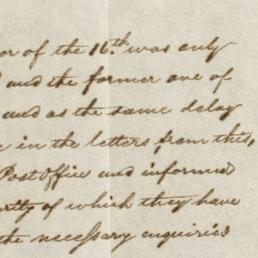 or of the 16.th was only
and the former one of
and as the same delay
in the letters from this,
Post Office and informed
rity of which they have
the necessary enquiries